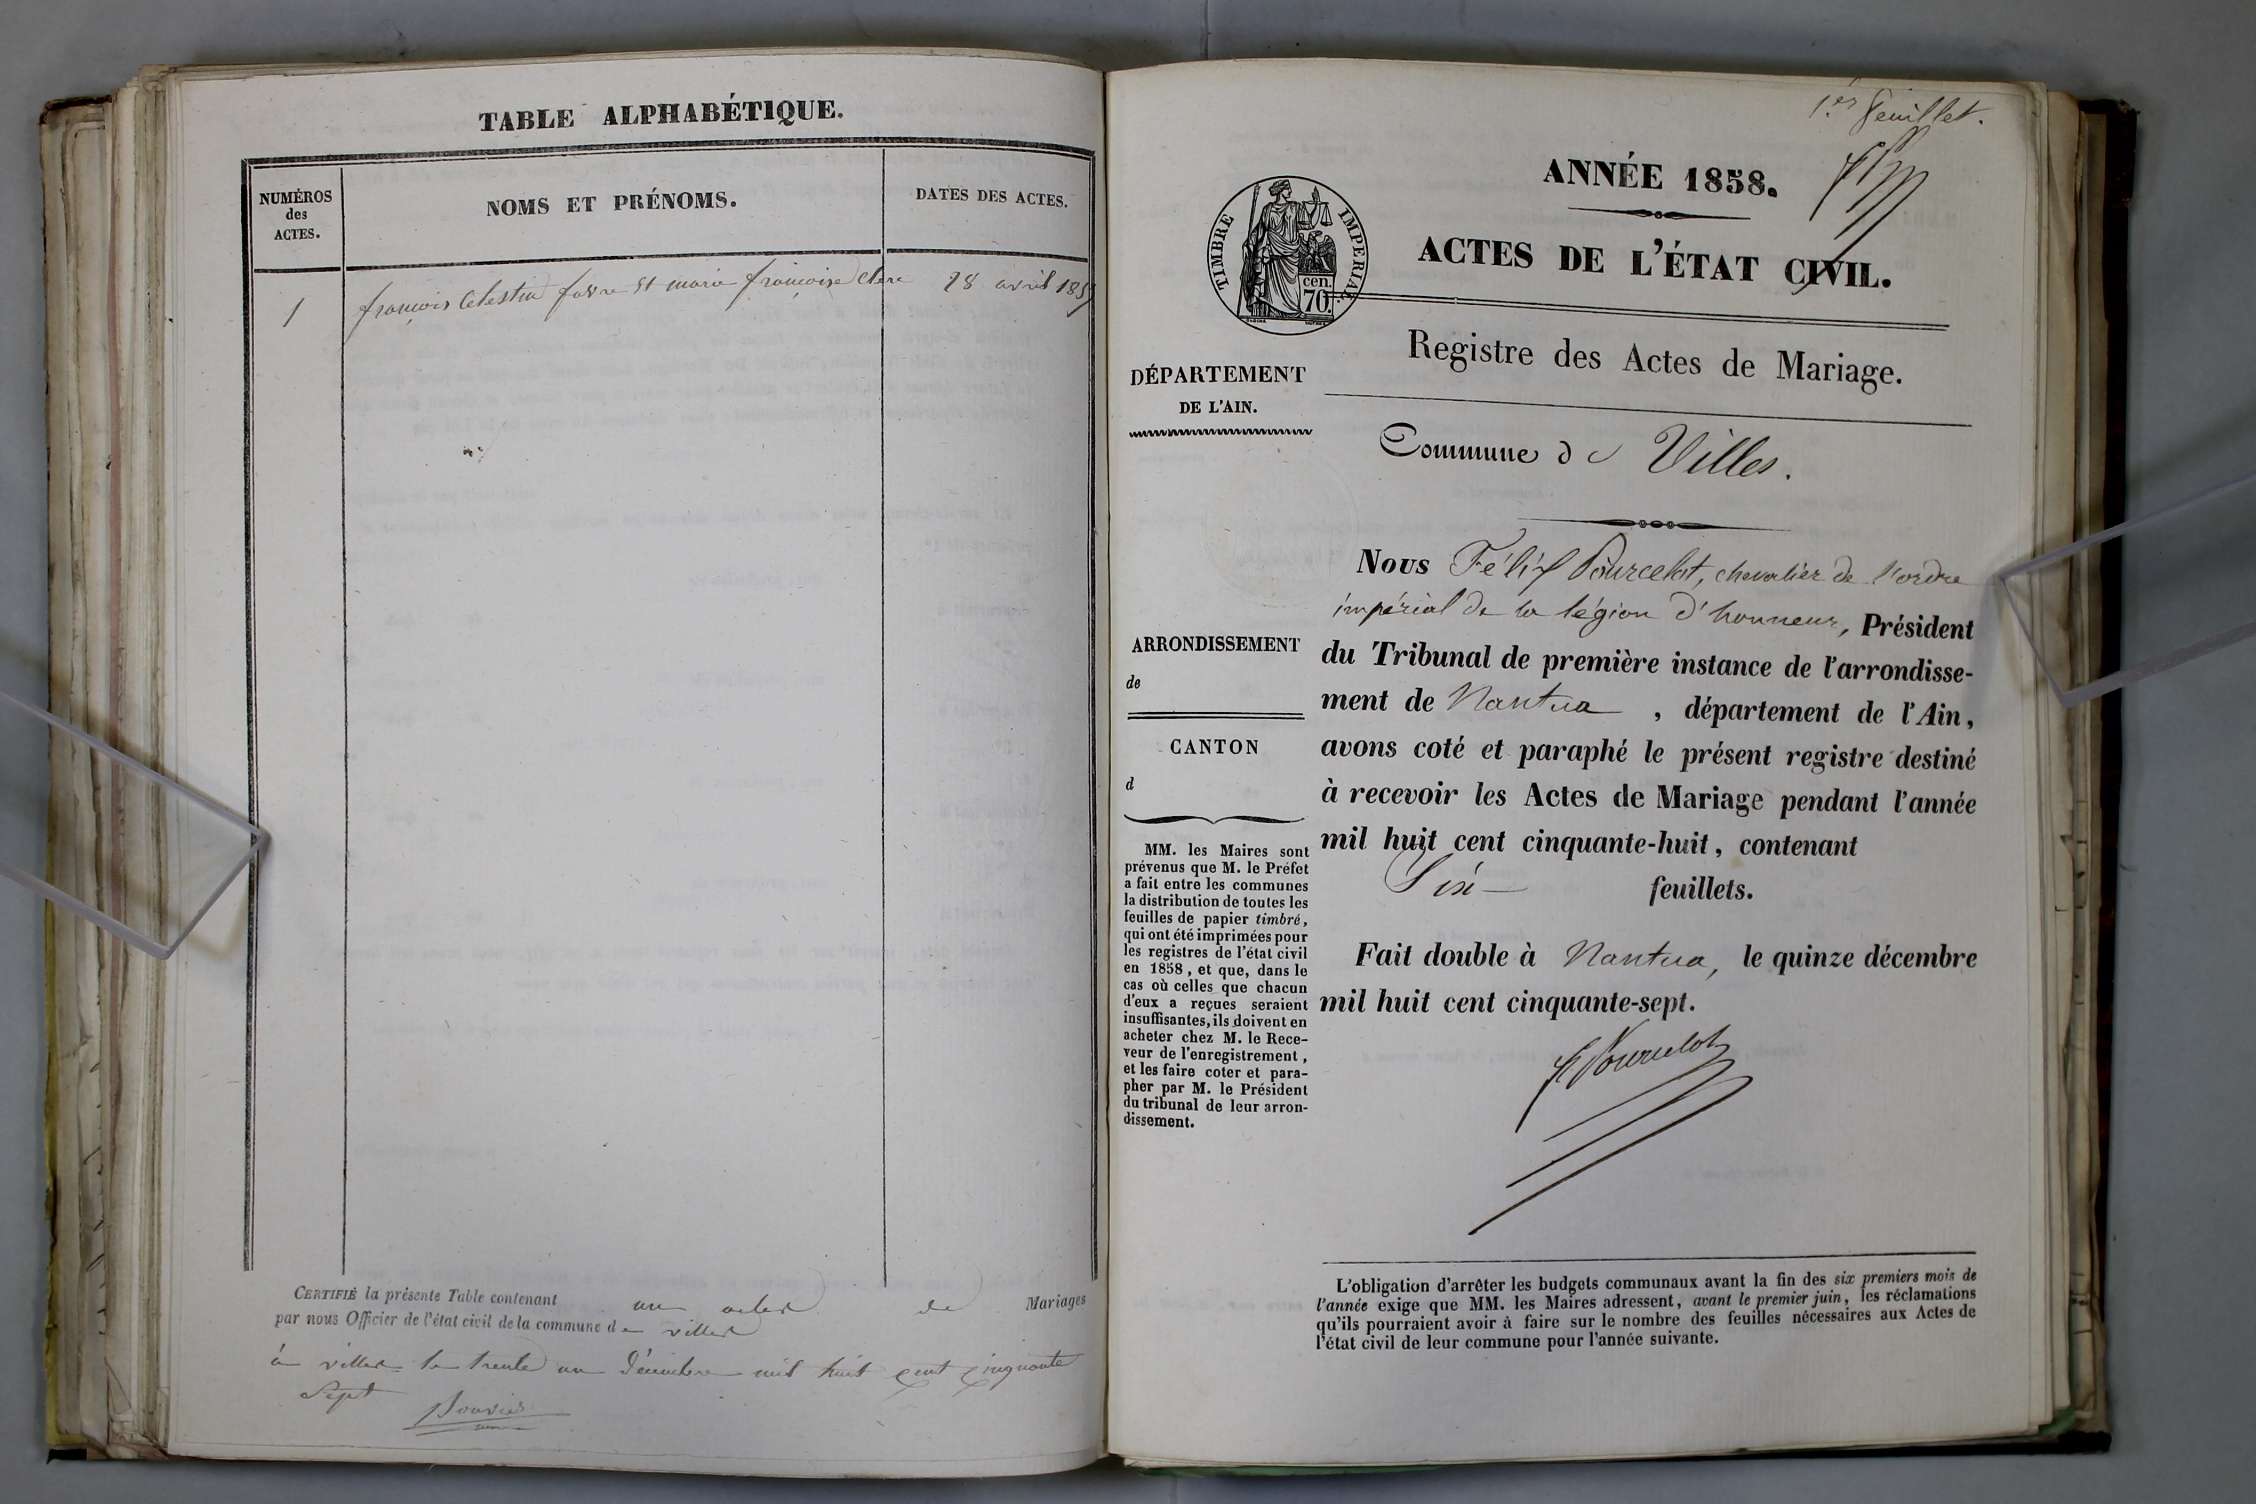 TABLE ALPHABÉTIQUE.
NUMÉROS
des
ACTES.
NOMS ET PRÉNOMS.
DATES DES ACTES.
1 françois Celestin favre et marie françoise Clerc 28 avril 1857
CERTIFIÉ la présente Table contenant un actes de Mariages
par nous Officier de l'état civil de la commune de villes
à villes le trente un Décembre mil huit cent cinquante
Sept
Bouvier
1.er feuillet.
ANNÉE 1858.
TIMBRE IMPÉRIAL
cen.
70.
ACTES DE L'ÉTAT CIVIL.
Registre des Actes de Mariage.
DÉPARTEMENT
DE L'AIN.
Commune de Villes.
ARRONDISSEMENT
de
CANTON
d
MM. les Maires sont
prévenus que M. le Préfet
a fait entre les communes
la distribution de toutes les
feuilles de papier timbré,
qui ont été imprimées pour
les registres de l'état civil
en 1858, et que, dans le
cas où celles que chacun
d'eux a reçues seraient
insuffisantes, ils doivent en
acheter chez M. le Rece-
veur de l'enregistrement,
et les faire coter et para-
pher par M. le Président
du tribunal de leur arron-
dissement.
Nous Félix Pourcelot, chevalier de l'ordre
impérial de la légion d'honneur, Président
du Tribunal de première instance de l'arrondisse-
ment de Nantua, département de l'Ain,
avons coté et paraphé le présent registre destiné
à recevoir les Actes de Mariage pendant l'année
mil huit cent cinquante-huit, contenant
Six feuillets.
Fait double à Nantua, le quinze décembre
mil huit cent cinquante-sept.
F Pourcelot
L'obligation d'arrêter les budgets communaux avant la fin des six premiers mois de
l'année exige que MM. les Maires adressent, avant le premier juin, les réclamations
qu'ils pourraient avoir à faire sur le nombre des feuilles nécessaires aux Actes de
l'état civil de leur commune pour l'année suivante.